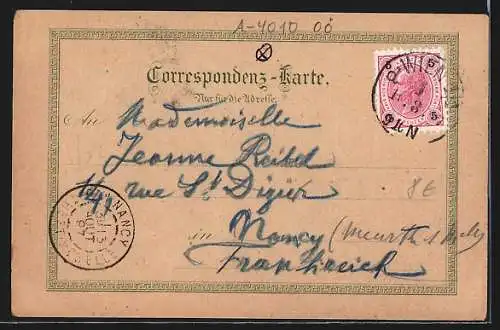 A-4010 00
Correspondenz-Karte.
Nur für die Adresse.
An Mademoiselle
Jeanne Reibel
141 rue St Dizier
in Nancy (Meurthe
Frankreich
8€
WIEN
5 5
NANCY
AOUT
97